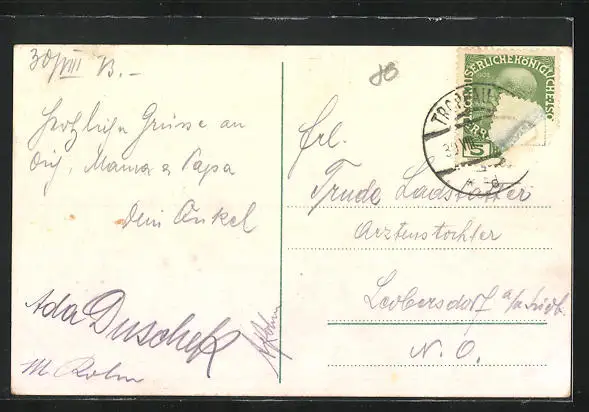 30/VIII 13.-
Herzliche Grüsse an
Dich, Mama & Papa
Dein Onkel
Ada Duschek
M. Rohm
80
KAISERLICHEKÖNIGLICHE
1908
5
TROPPAU
30.VIII
Frl.
Trude Ladstätter
Arztenstochter
Leobersdorf a/a Südb.
N. Ö.